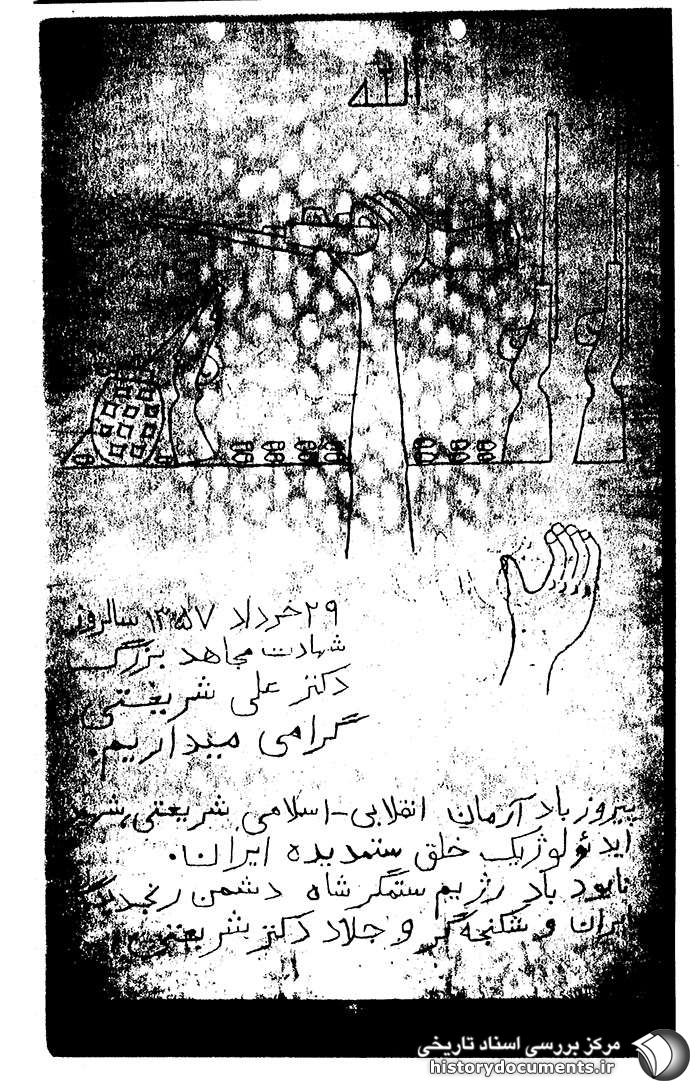 الله
۲۹ خرداد ۱۳۵۷ سالروز
شهادت مجاهد بزرگ
دکتر علی شریعتی
گرامی میداریم.
پیروز باد آرمان انقلابی-اسلامی شریعتی، شهید
ایدئولوژیک خلق ستمدیده ایران.
نابود باد رژیم ستمگر شاه دشمن
ایران و شکنجه‌گر و جلاد دکتر شریعتی
مرکز بررسی اسناد تاریخی
historydocuments.ir